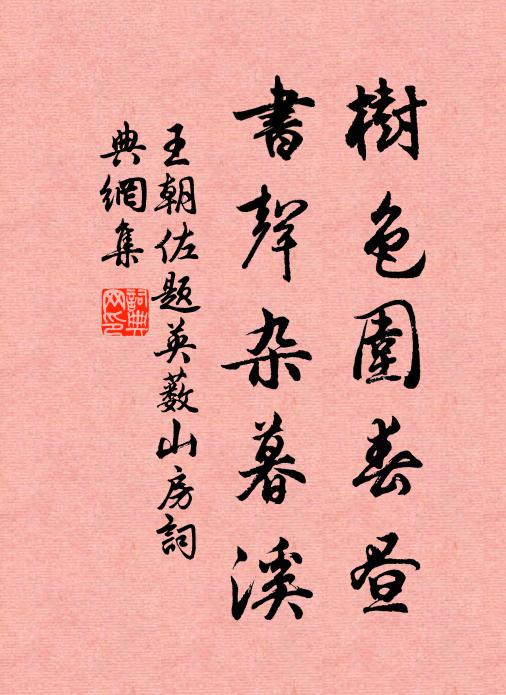 樹色圍春昼
書聲杂暮溪
王朝佐題英薮山房詞
典網集
詞典网印